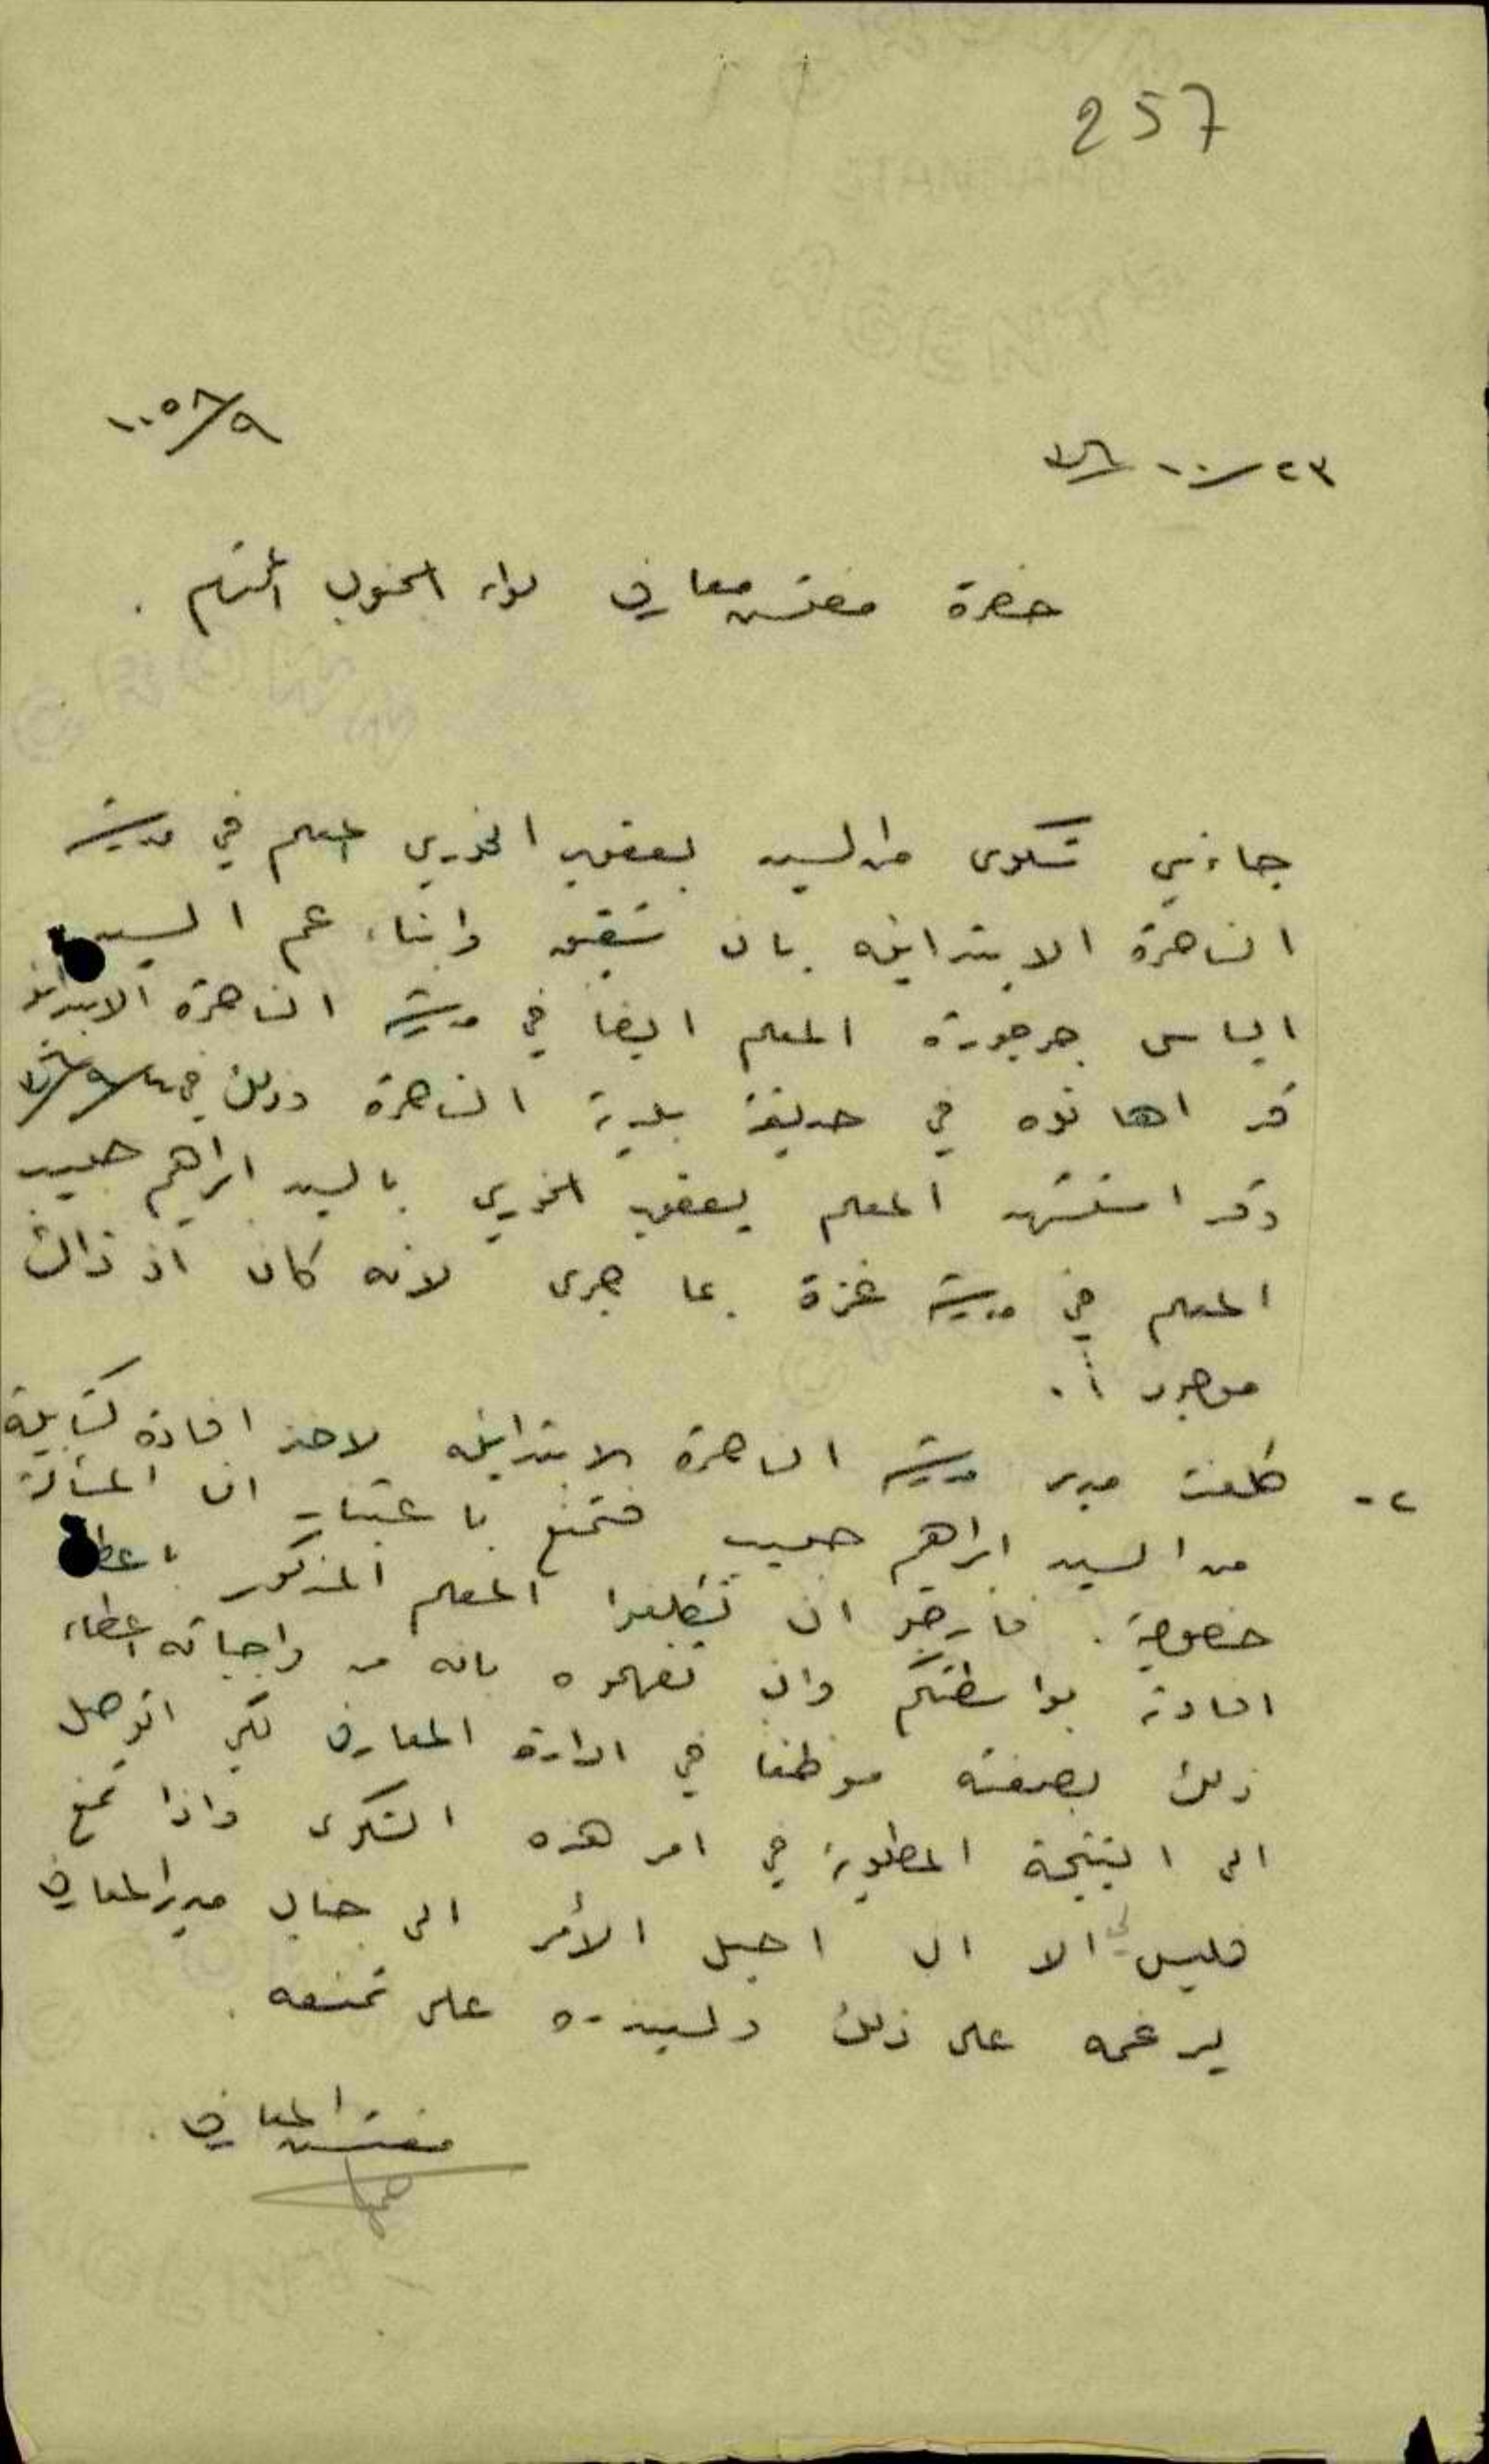 257
١٠٠٥٨/٩
٢٣/١٠/
حضرة مفتش معارف لواء الجنوب المحترم .
جاءني شكوى من السيد يعقوب الخوري المعلم في مدرسة
الناصرة الابتدائية بان شقيق وابناء عم السيد
الياس جرجورة المعلم ايضا في مدرسة الناصرة الابتدائية
قد اهانوه في حديقة بلدية الناصرة وذلك في
وقد استشهد المعلم يعقوب الخوري بالسيد ابراهيم حبيب
المعلم في مدرسة غزة بما جرى لانه كان اذ ذاك
موجودا .
٢- كلفت مدير مدرسة الناصرة الابتدائية لاخذ افادة كتابية
من السيد ابراهيم حبيب فتمنع باعتبار ان المسألة
خصوصية . فارجو ان تكلفوا المعلم المذكور باعطاء
افادته بواسطتكم وان تفهموه بانه من واجباته اعطاء
ذلك بصفته موظفا في ادارة المعارف لكي اتوصل
الى النتيجة المطلوبة في امر هذه الشكوى واذا تمنع
فليس لي الا ان احيل الأمر الى جناب مدير المعارف
ليرغمه على ذلك ولينذره على تمنعه .
مفتش المعارف .